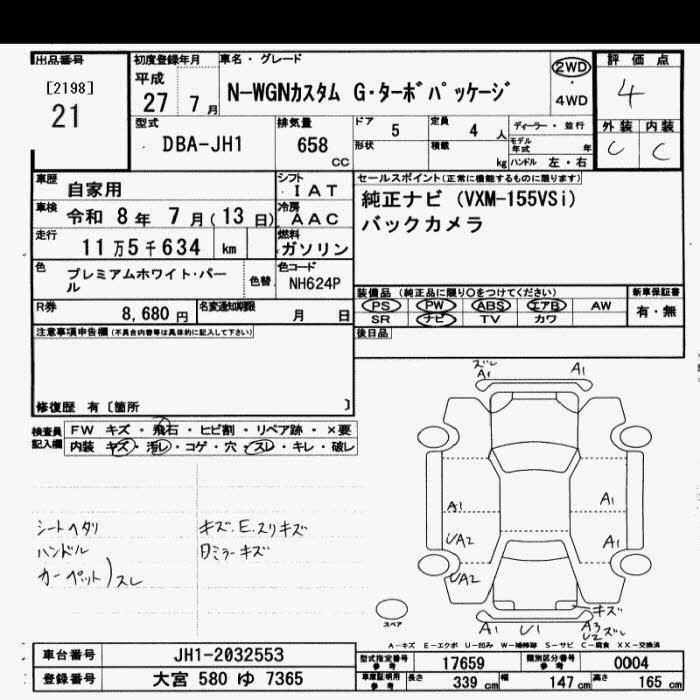 出品番号
[2198]
21
初度登録年月
平成
27 7 月
車名・グレード
N-WGNカスタム G・ターボパッケージ
2WD
・
4WD
評価点
4
外装 内装
C C
型式
DBA-JH1
排気量
658
CC
ドア 5
形状
定員 4 人
積載 kg
ディーラー・並行
モデル年式 年
ハンドル 左・右
車歴
自家用
シフト
IAT
車検
令和 8 年 7 月(13 日)
冷房
AAC
走行
11万5千634 km
燃料
ガソリン
色
プレミアムホワイト・パール
色替
色コード
NH624P
R券
8,680 円
名変通知期限
月 日
セールスポイント(正常に機能するものに限ります)
純正ナビ (VXM-155VSi)
バックカメラ
装備品 (純正品に限り○をつけてください)
PS PW ABS エアB AW
SR ナビ TV カワ
新車保証書
有・無
後日品
注意事項申告欄(不具合内容等は具体的に記入して下さい)
修復歴 有〔箇所 〕
検査員記入欄
FW キズ・飛石・ヒビ割・リペア跡・×要
内装 キズ・汚レ・コゲ・穴・スレ・キレ・破レ
シートヘタリ
ハンドル
カーペット)スレ
キズ.E.スリキズ
ミラーキズ
ズレ
A1
A1
A1
A1
UA2
A1
UA2
キズ
A1
U1
A3
U2ズレ
スペア
A-キズ E-エクボ U-凹み W-補修跡 S-サビ C-腐食 XX-交換済
車台番号
JH1-2032553
登録番号
大宮 580 ゆ 7365
型式指定番号
参考
17659
類別区分番号
参考
0004
車庫証明用
参考
長さ 339 cm
幅 147 cm
高さ 165 cm